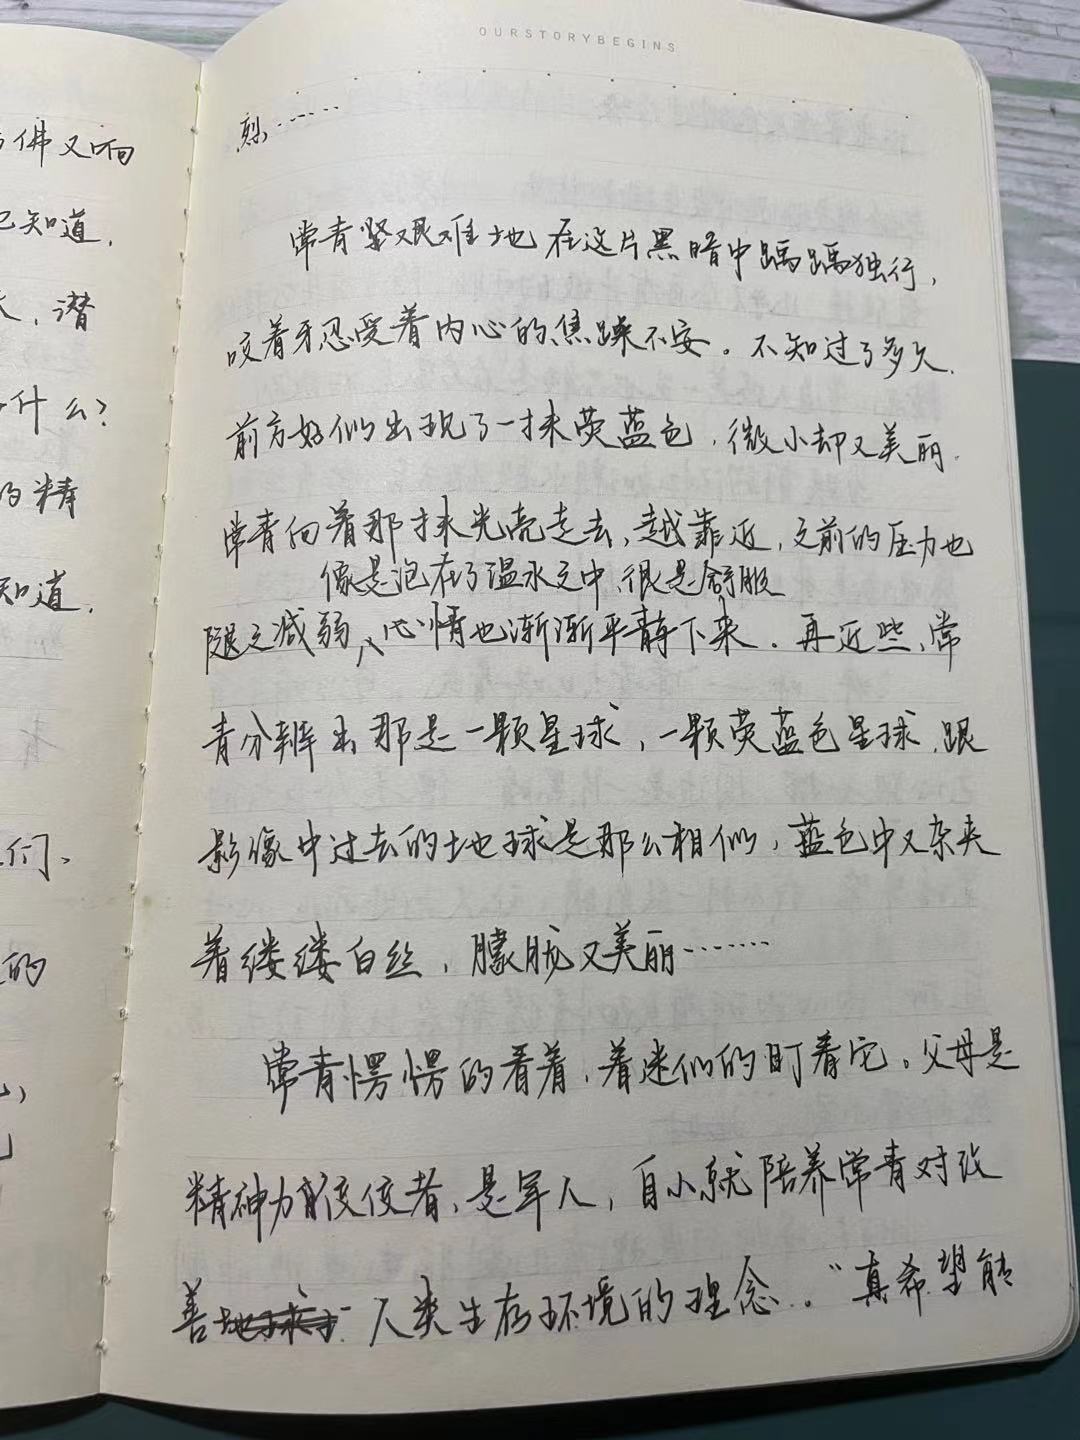 OURSTORYBEGINS
烈……
常青坚艰难地在这片黑暗中踽踽独行,
咬着牙忍受着内心的焦躁不安。不知过了多久,
前方好似出现了一抹荧蓝色,微小却又美丽.
常青向着那抹光亮走去,越靠近,之前的压力也
像是泡在了温水之中,很是舒服
随之减弱,心情也渐渐平静下来.再近些,常
青分辨出那是一颗星球,一颗荧蓝色星球,跟
影像中过去的地球是那么相似,蓝色中又杂夹
着缕缕白丝,朦胧又美丽……
常青愣愣的看着,着迷似的盯着它。父母是
精神力佼佼者,是军人,自小就陪养常青对改
善人类生存环境的理念.。"真希望能
佛又响
己知道,
,潜
什么?
的精
知道,
们、
的